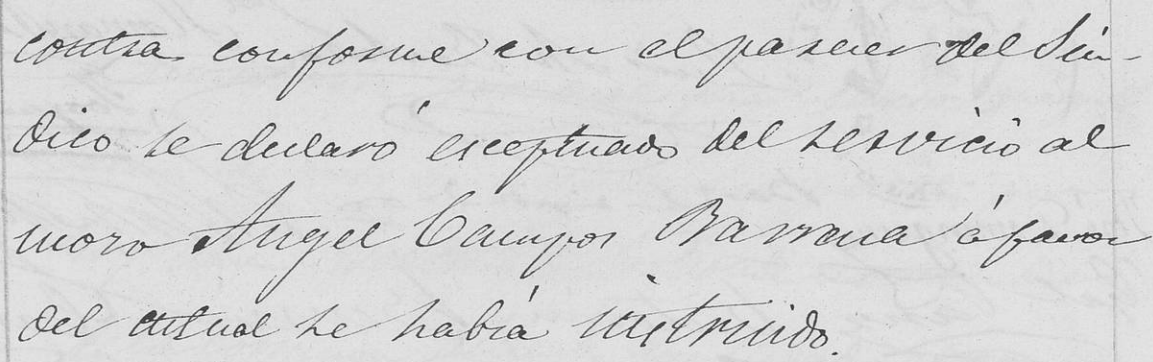 contra conforme con el parecer del Sin-
dico se declaró esceptuado del servicio al
mozo Angel Campos Barrena á favor
del cual se había instruido.